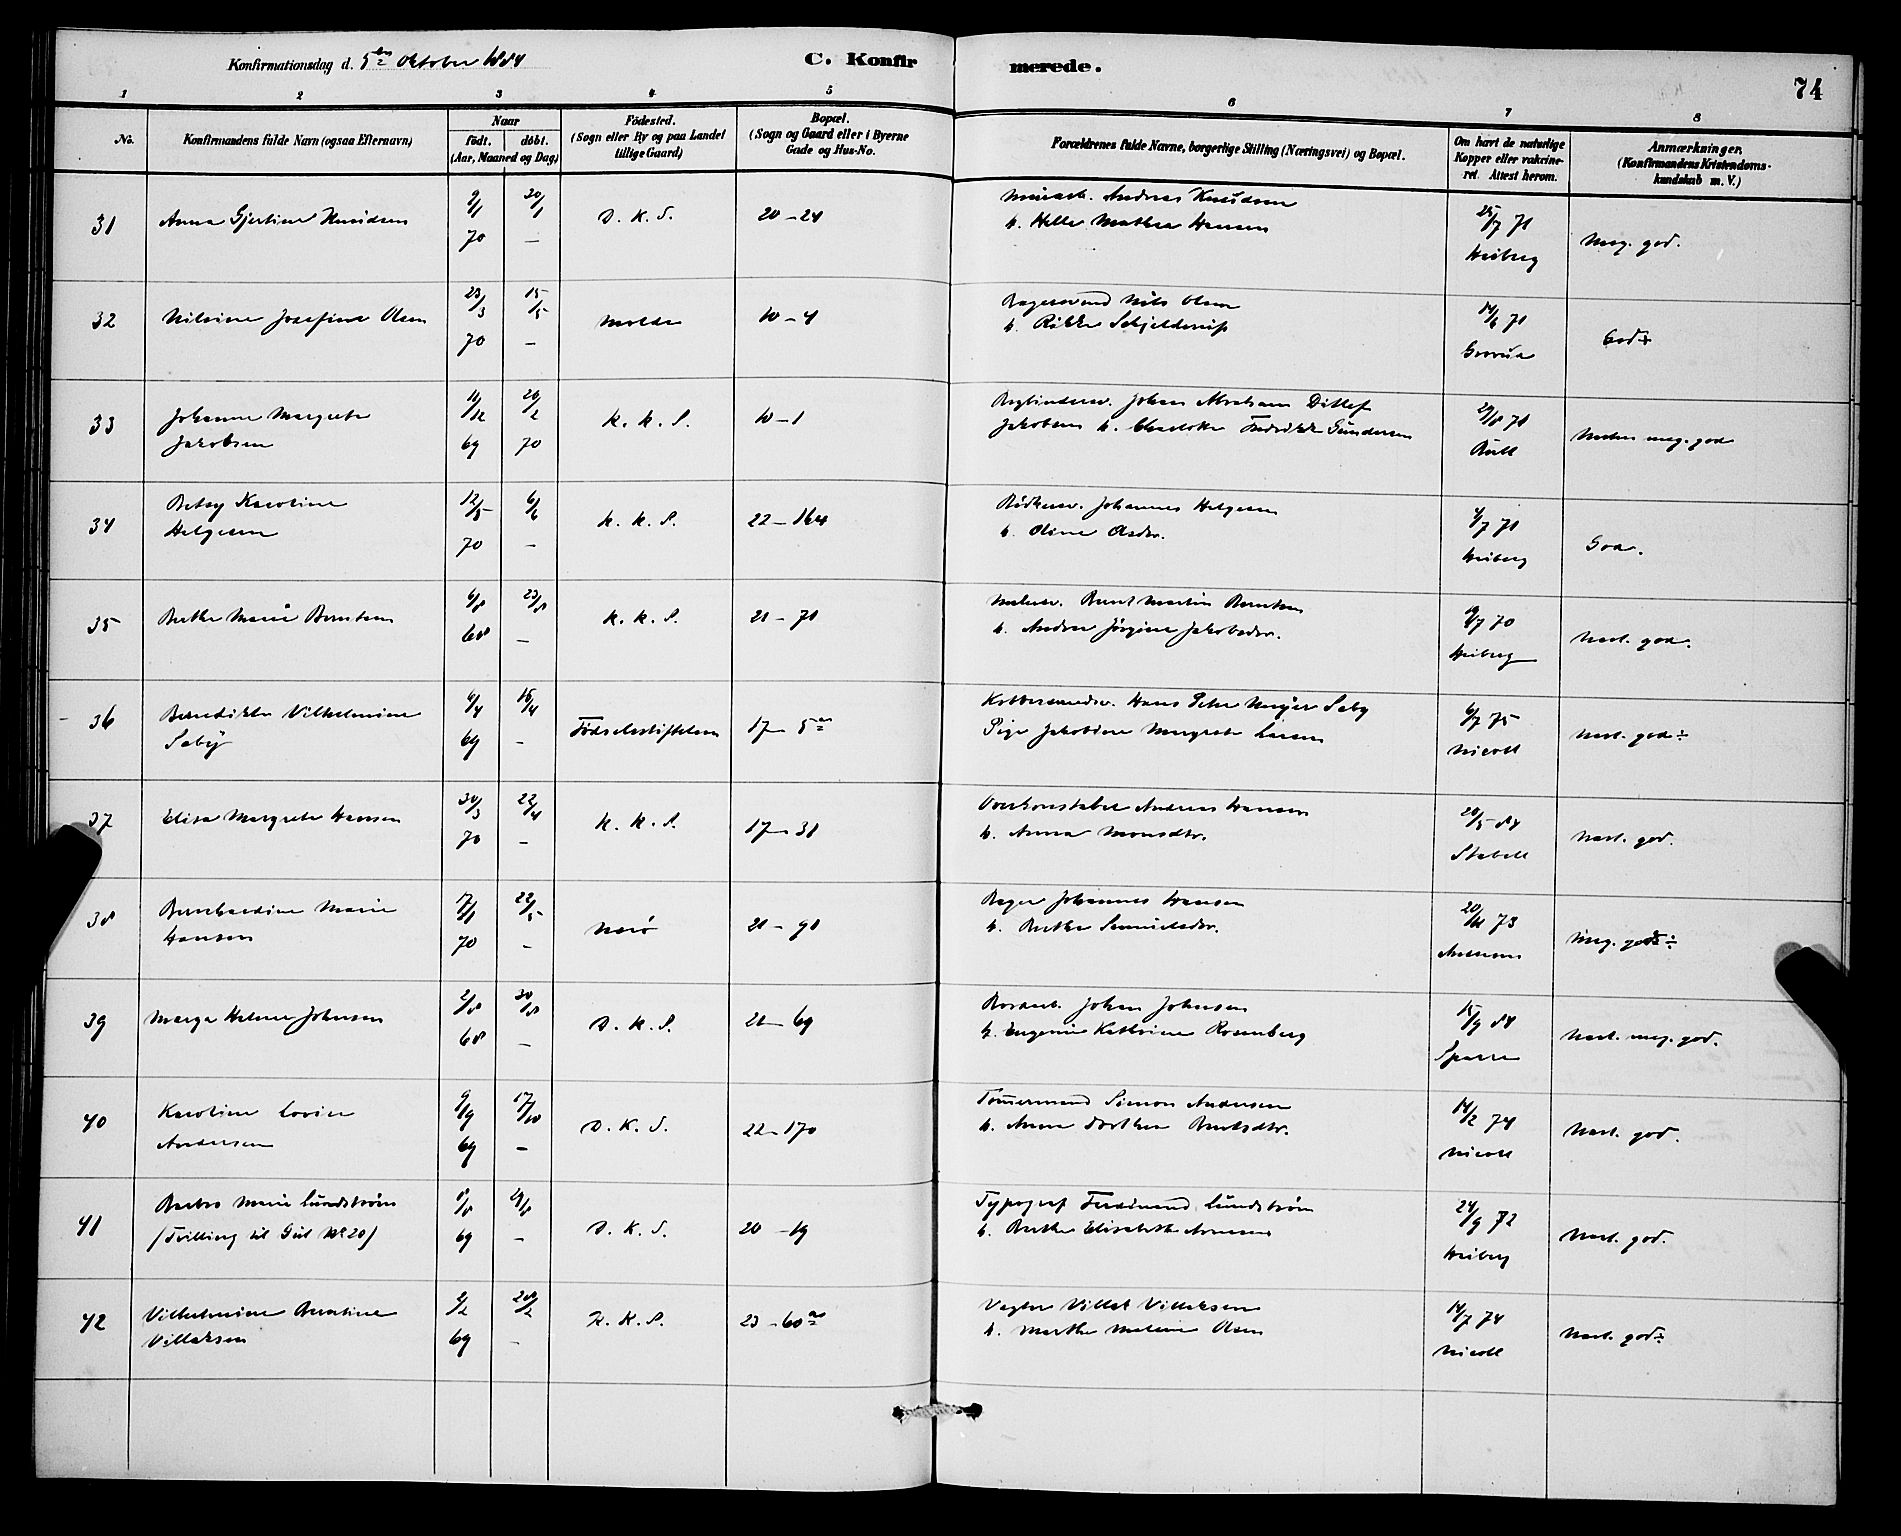 Konfirmationsdag d. 5te Oktober 1884
C. Konfirmerede.
74
1 2 3 4 5 6 7 8
No. Konfirmandens fulde Navn (ogsaa Efternavn) Naar födt. döbt. (Aar, Maaned og Dag) Födested. (Sogn eller By og paa Landet tillige Gaard) Bopæl. (Sogn og Gaard eller i Byerne Gade og Hus-No. Forældrenes fulde Navne, borgerlige Stilling (Næringsvei) og Bopæl. Om havt de naturlige Kopper eller vakcineret. Attest herom. Anmærkninger. (Konfirmandens Kristendomskundskab m. V.)
31 Anna Gjertine Knudsen 9/1 70 20/1 – D. K. S. 20 – 24 Andreas Knudsen
h. Helle Mathea Hansen 25/7 71 Heiberg Meg. god.
32 Nilsine Josefine Olsen 23/3 70 15/5 – Molde 10 – 4 Nils Olsen
h. Rikke Schjelderup 14/6 71 God÷
33 Johanne Margrete
Jakobsen 11/12 69 20/2 70 K. K. S. 10 – 1 Johan Abraham Ditlef
Jakobsen h. Fredrikke Gundersen 71 Næsten meg. god
34 Betsy Karoline
Helgesen 12/5 70 6/6 – K. K. S. 22 – 164 Bödkersv. Johannes Helgesen
h. Oline Olsdtr. 4/7 71 Heiberg God.
35 Berthe Marie Berntsen 6/8 68 23/8 – K. K. S. 21 – 71 Malersv. Bernt Martin Berntsen
h. Andrea Jörgine Jakobsdtr. 9/7 70 Heiberg Næst. god.
36 Benedikte Vilhelmine
Seby 6/4 69 16/4 – Födselsstiftelsen 17 – 5 Hans Peter Meyer Seby
Pige Jakobine Margrete Larsen 6/7 75 Nicoll Næst. god÷
37 Elisa Margrete Hansen 30/3 70 22/4 – K. K. S. 17 – 31 Overkonstabel Andreas Hansen
h. Anna Monsdtr. 20/5 84 Stabell Næst. god.
38 Bernhardine Marie
Hansen 17/1 70 22/5 – 21 – 91 Bager Johannes Hansen
h. Berthe Samuelsdtr. 73 Meg. god÷
39 Helene Johnsen 2/8 68 30/8 – D. K. S. 21 – 69 Johan Johnsen
h. Eugenie Kathrine Rosenberg 15/9 84 Sparre Næst. meg. god.
40 Karoline Lovise
Andersen 9/9 69 17/10 – D. K. S. 22 – 170 Tömmermand Simon Andersen
h. Anne Dorthea Berntsdtr. 14/2 74 Nicoll Næst. god.
41 Barbro Marie Lundström
(Tvilling til Gut No 20) 69 – D. K. S. 20 – 19 Typograf Ferdinand Lundström
h. Berthe Elisabeth Arnesen 24/9 72 Heiberg Næst. god.
42 Vilhelmine Berntine
Villaksen 2/2 69 28/2 – K. K. S. 23 – 60 Vægter Villak Villaksen
h. Marthe Olsen 14/7 74 Nicoll Næst. god÷